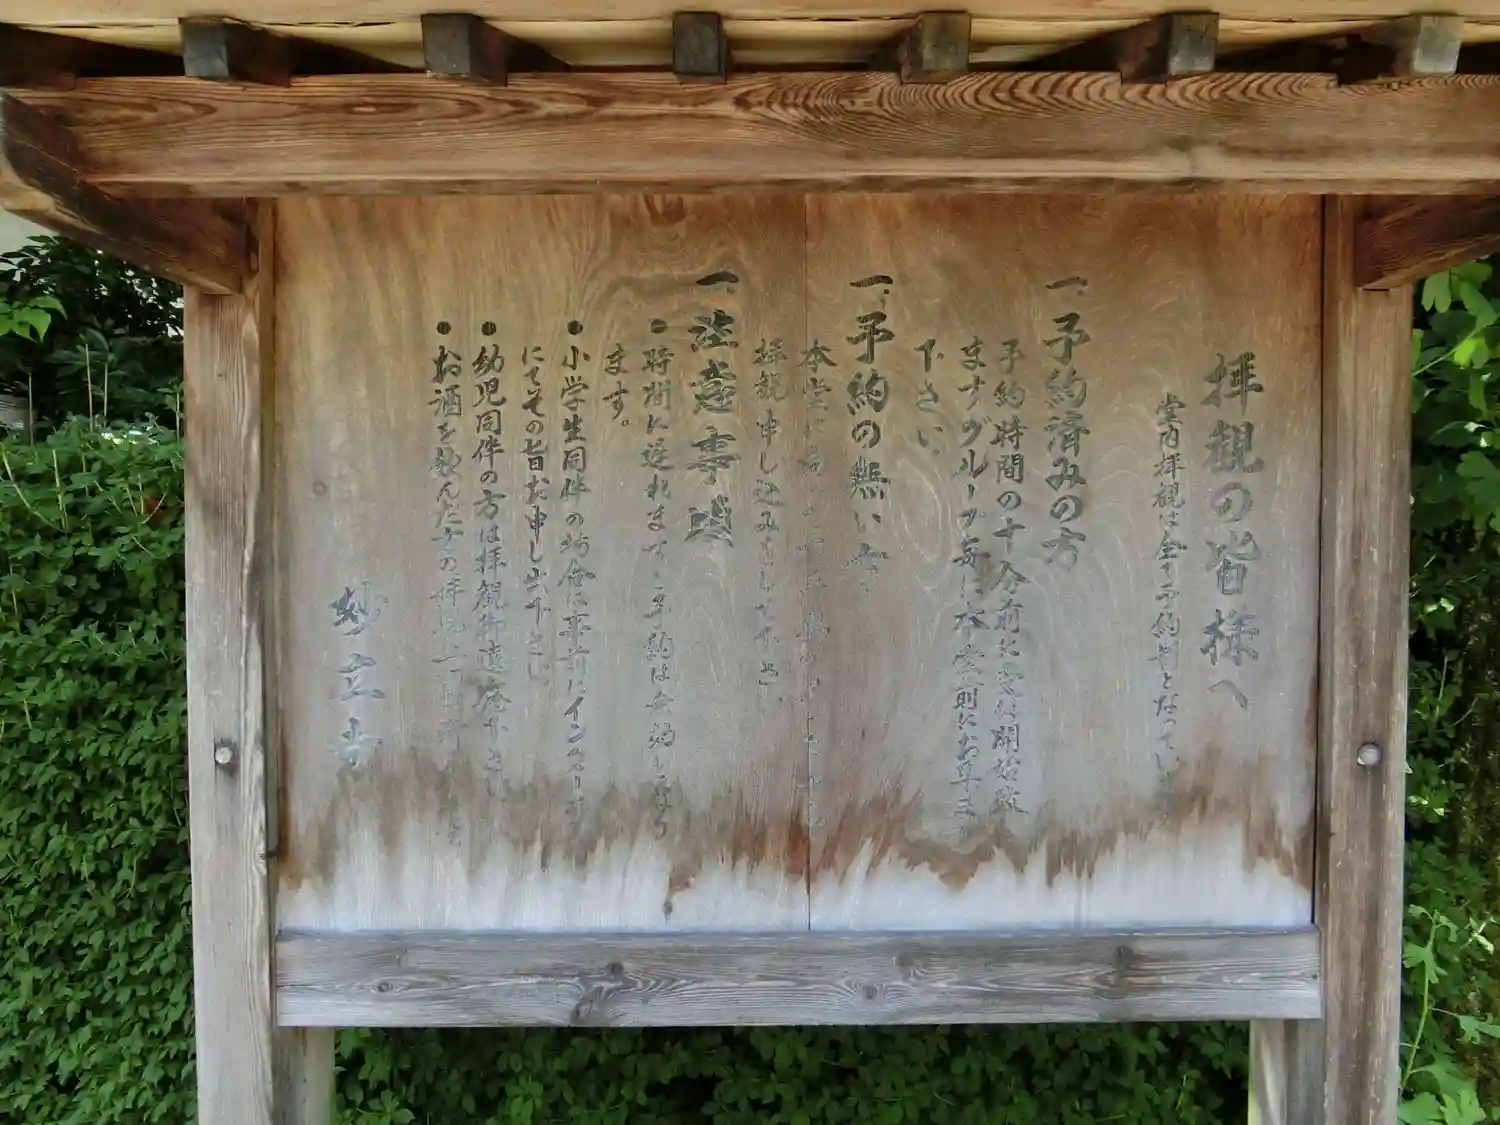 拝観の皆様へ
堂内拝観は全て予約制となってい
一、予約済みの方
予約時間の十分前に受付開始致
ますグループ毎に本堂前にお集ま
下さい
一、予約の無い方
本堂に
拝観申し込みをして下さい
一、注意事項
●時間に遅れますと予約は無効になり
ます。
●小学生同伴の場合は事前にインターホン
にてその旨お申し出下さい
●幼児同伴の方は拝観御遠慮下さい
●お酒を飲んだ方の拝観
妙立寺